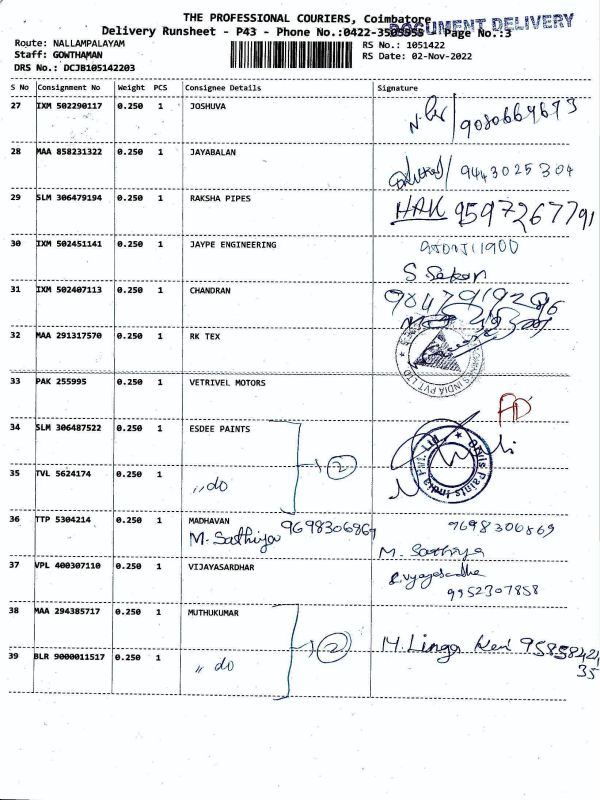 THE PROFESSIONAL COURIERS, Coimbatore
DOCUMENT DELIVERY
Delivery Runsheet - P43 - Phone No.:0422- Page No.:3
Route: NALLAMPALAYAM
RS No.: 1051422
Staff: GOWTHAMAN
RS Date: 02-Nov-2022
DRS No.: DCJB105142203
S No Consignment No Weight PCS Consignee Details Signature
27 IXM 502290117 0.250 1 JOSHUVA
28 MAA 858231322 0.250 1 JAYABALAN 9443025304
29 SLM 306479194 0.250 1 RAKSHA PIPES HAK 9597267791
30 IXM 502451141 0.250 1 JAYPE ENGINEERING
S Sekar
31 IXM 502407113 0.250 1 CHANDRAN
32 MAA 291317570 0.250 1 RK TEX
INDIA PVT LTD
33 PAK 255995 0.250 1 VETRIVEL MOTORS
34 SLM 306487522 0.250 1 ESDEE PAINTS
2
Paints
35 TVL 5624174 0.250 1 ,, do
36 TTP 5304214 0.250 1 MADHAVAN 9698306869 9698306869
M. Sathiya M. Sathiya
37 VPL 400307110 0.250 1 VIJAYASARDHAR
9952307858
38 MAA 294385717 0.250 1 MUTHUKUMAR
2 M. Linga
39 BLR 9000011517 0.250 1 ,, do
35